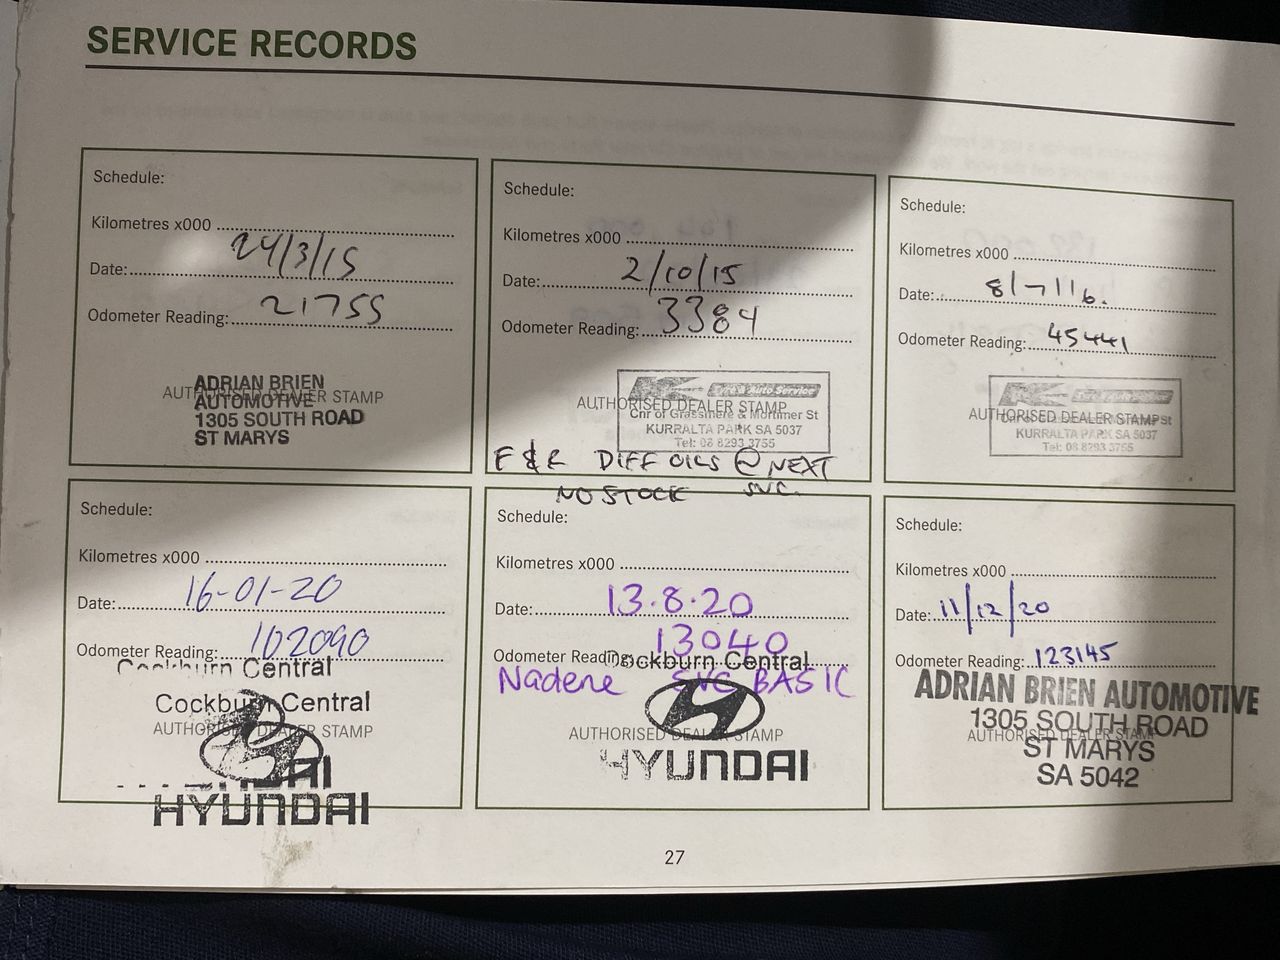 SERVICE RECORDS
Schedule:
Kilometres x000
Date: 24/3/15
Odometer Reading: 21755
AUTHORISED DEALER STAMP
ADRIAN BRIEN
AUTOMOTIVE
1305 SOUTH ROAD
ST MARYS
Schedule:
Kilometres x000
Date: 2/10/15
Odometer Reading: 3384
AUTHORISED DEALER STAMP
Tyre & Auto Service
Cnr of Grassmere & Mortimer St
KURRALTA PARK SA 5037
Tel: 08 8293 3755
F & R DIFF OILS @ NEXT
NO STOCK SVC.
Schedule:
Kilometres x000
Date: 8/7/16.
Odometer Reading: 45441
AUTHORISED DEALER STAMP
KURRALTA PARK SA 5037
Tel: 08 8293 3755
Schedule:
Kilometres x000
Date: 16-01-20
Odometer Reading: 102090
Cockburn Central
Cockburn Central
AUTHORISED DEALER STAMP
HYUNDAI
Schedule:
Kilometres x000
Date: 13.8.20
13040
Odometer Reading:
Cockburn Central
Nadene SVC BASIC
AUTHORISED DEALER STAMP
HYUNDAI
Schedule:
Kilometres x000
Date: 11/12/20
Odometer Reading: 123145
ADRIAN BRIEN AUTOMOTIVE
1305 SOUTH ROAD
AUTHORISED DEALER STAMP
ST MARYS
SA 5042
27